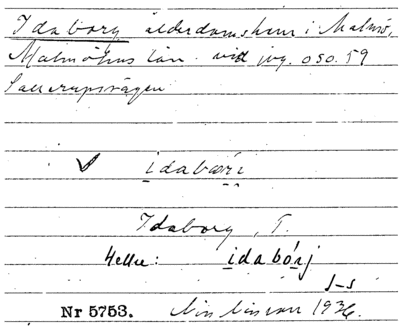 Idaborg ålderdomshem i Malmö,
Malmöhus län. vid jvg. 050.59
Sallerupsvägen
✓ idabɷri
Idaborg, T.
Heller: idabórj
J-s
Nr 5753. Nils Nilsson 1936.